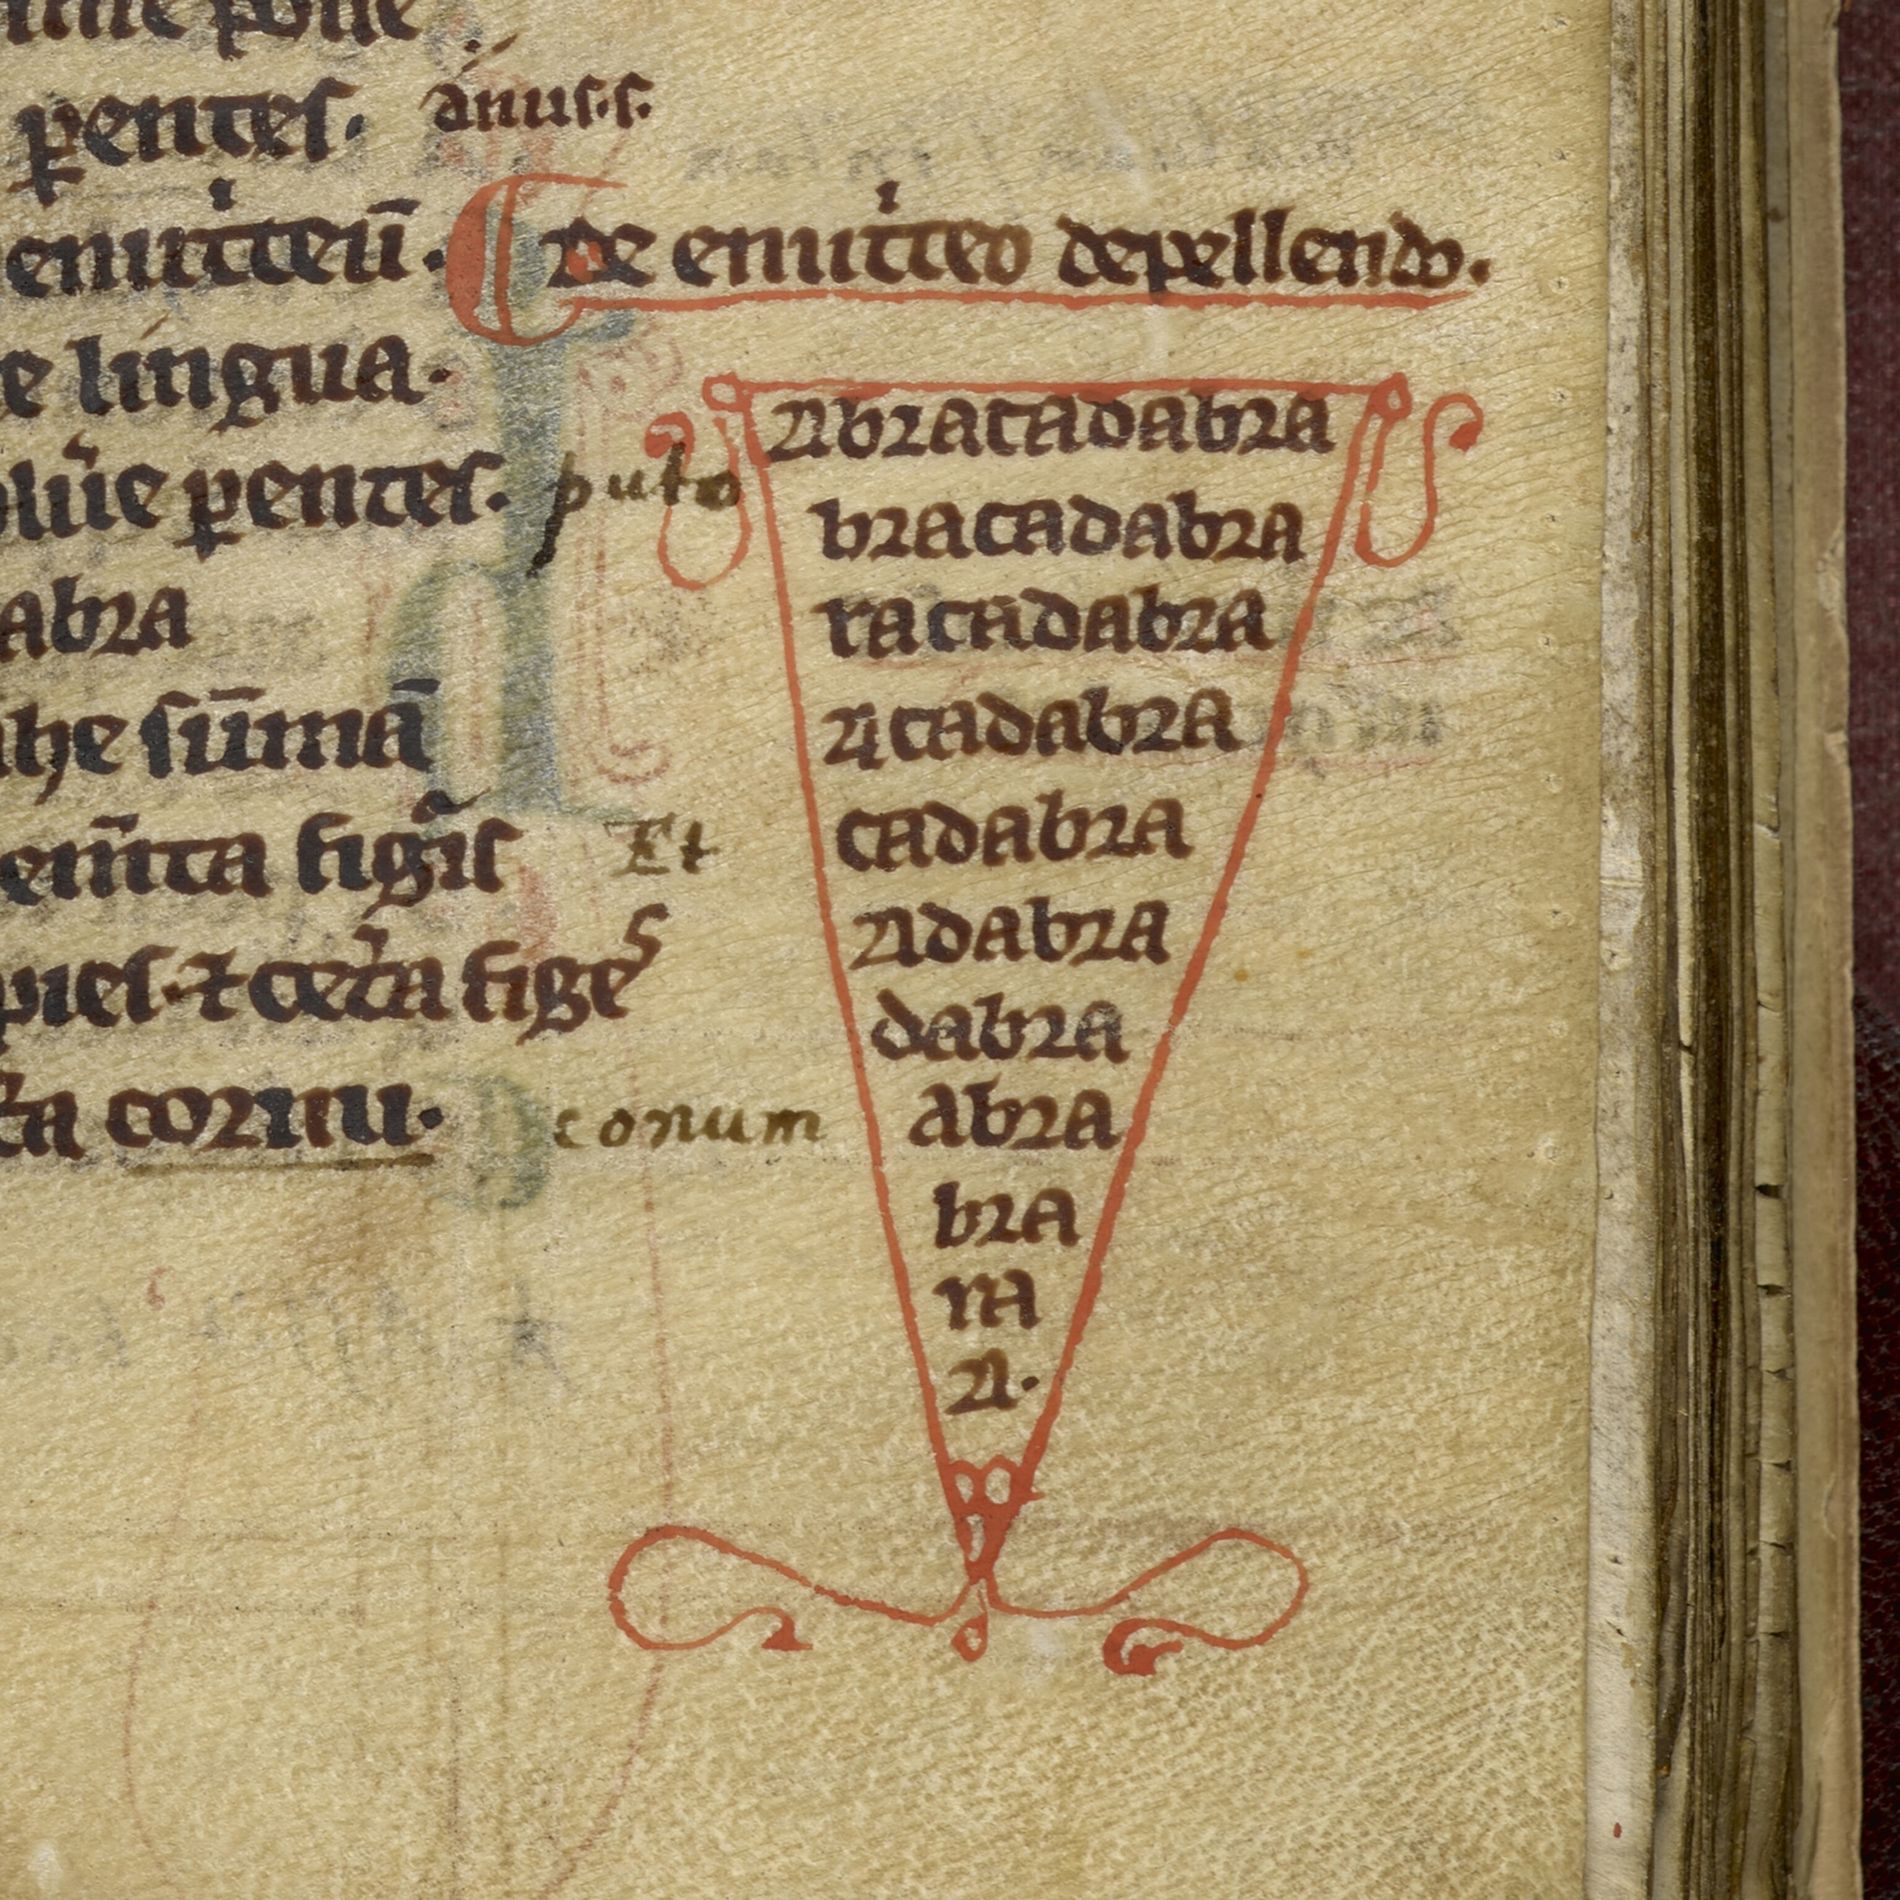 pentes. anus.s.
emitteū. De emitteo depellendo.
lingua.
pentes. puto
abra
he sūmā
figis Et
piel ⁊ cet̄a fige
cornu. conum
Abracadabra
bracadabra
racadabra
Acadabra
cadabra
Adabra
dabra
abra
bra
ra
A.